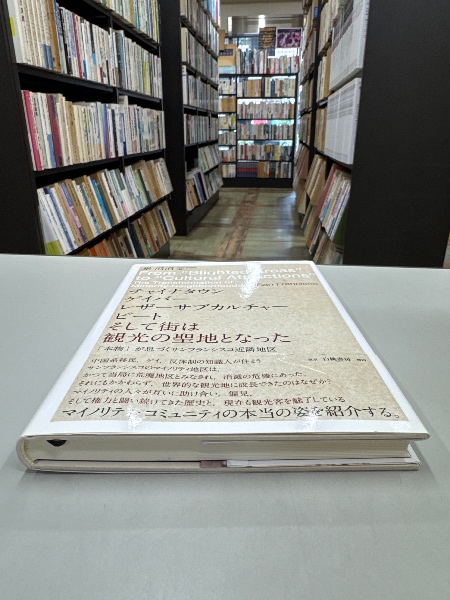 From "Blighted Areas"
to "Cultural Attractions"
The Transformation of
San Francisco
チャイナタウン
ゲイバー
レザーサブカルチャー
ビート
そして街は
観光の聖地となった
「本物」が息づくサンフランシスコ近隣地区
中国系移民、ゲイ、反体制の知識人が住まう
サンフランシスコのマイノリティ地区は、
かつて当局に荒廃地区とみなされ、消滅の危機にあった。
それにもかかわらず、世界的な観光地に成長できたのはなぜか?
マイノリティの人々が互いに助け合い、偏見、
そして権力と闘い続けてきた歴史と、現在も観光客を魅了している
マイノリティ・コミュニティの本当の姿を紹介する。